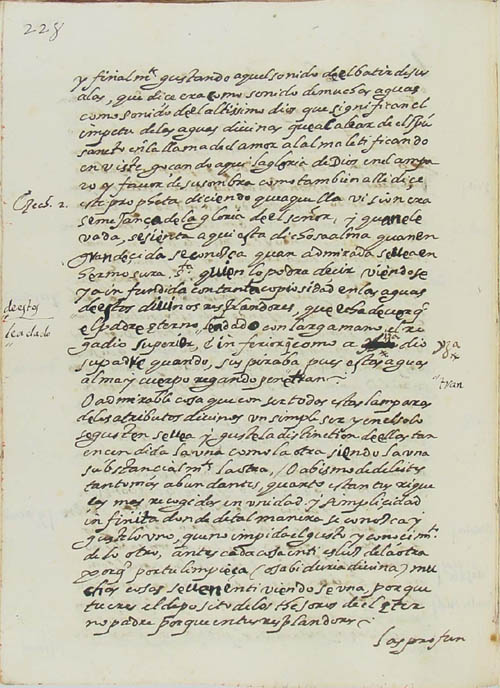 228
y finalmte gustando aquel sonido de el batir de sus
alas, que dice era como sonido de muchas aguas
como sonido de el altissimo dios que significan el
impetu de las aguas divinas que al alear de el spu
sancto en la llama del amor al alma letificando
en viste gocando aqui la gloria de Dios en el ampa
ro y favor de su sombra como tambien alli dice
este propheta diciendo que aquella vision era
Ecech. 2.
semejança de la gloria de el señor, y quan ele
vada, se sienta aqui esta dichosa alma quan en
grandecida se conosca quan admirada se vea en
hermosura sta quien lo podra decir viendose
ya infundida con tanta copiosidad en las aguas
de estos divinos resplandores, que echa de ver q
de estos
el padre eterno le a dado con larga mano el re
le a dado
gadio superior, e inferior q como a dio
su padre quando, suspiraba pues estas aguas
alma y cuerpo regando penetran
tran
O admirable cosa que con ser todos estas lamparas
de los atributos divinos un simple ser y en el solo
se gusten se vea y guste la distinction de ellas tan
encendida la una como la otra siendo la una
substancialmte la otra, O abismo de deleites
tanto mas abundante, quanto estan tus rique
ças mas recogidas en unidad y simplicidad
infinita donde de tal manera se conosca y
guste lo uno, que no impida el gusto y conocimto
de lo otro, antes cada cosa en ti es luz de la otra
y porq por tu limpieça (O sabiduria divina) mu
chas cosas se ven en ti viendose una, porque
tu eres el deposito de los thesoros de el eter
no padre porque en tus resplandores
las profun